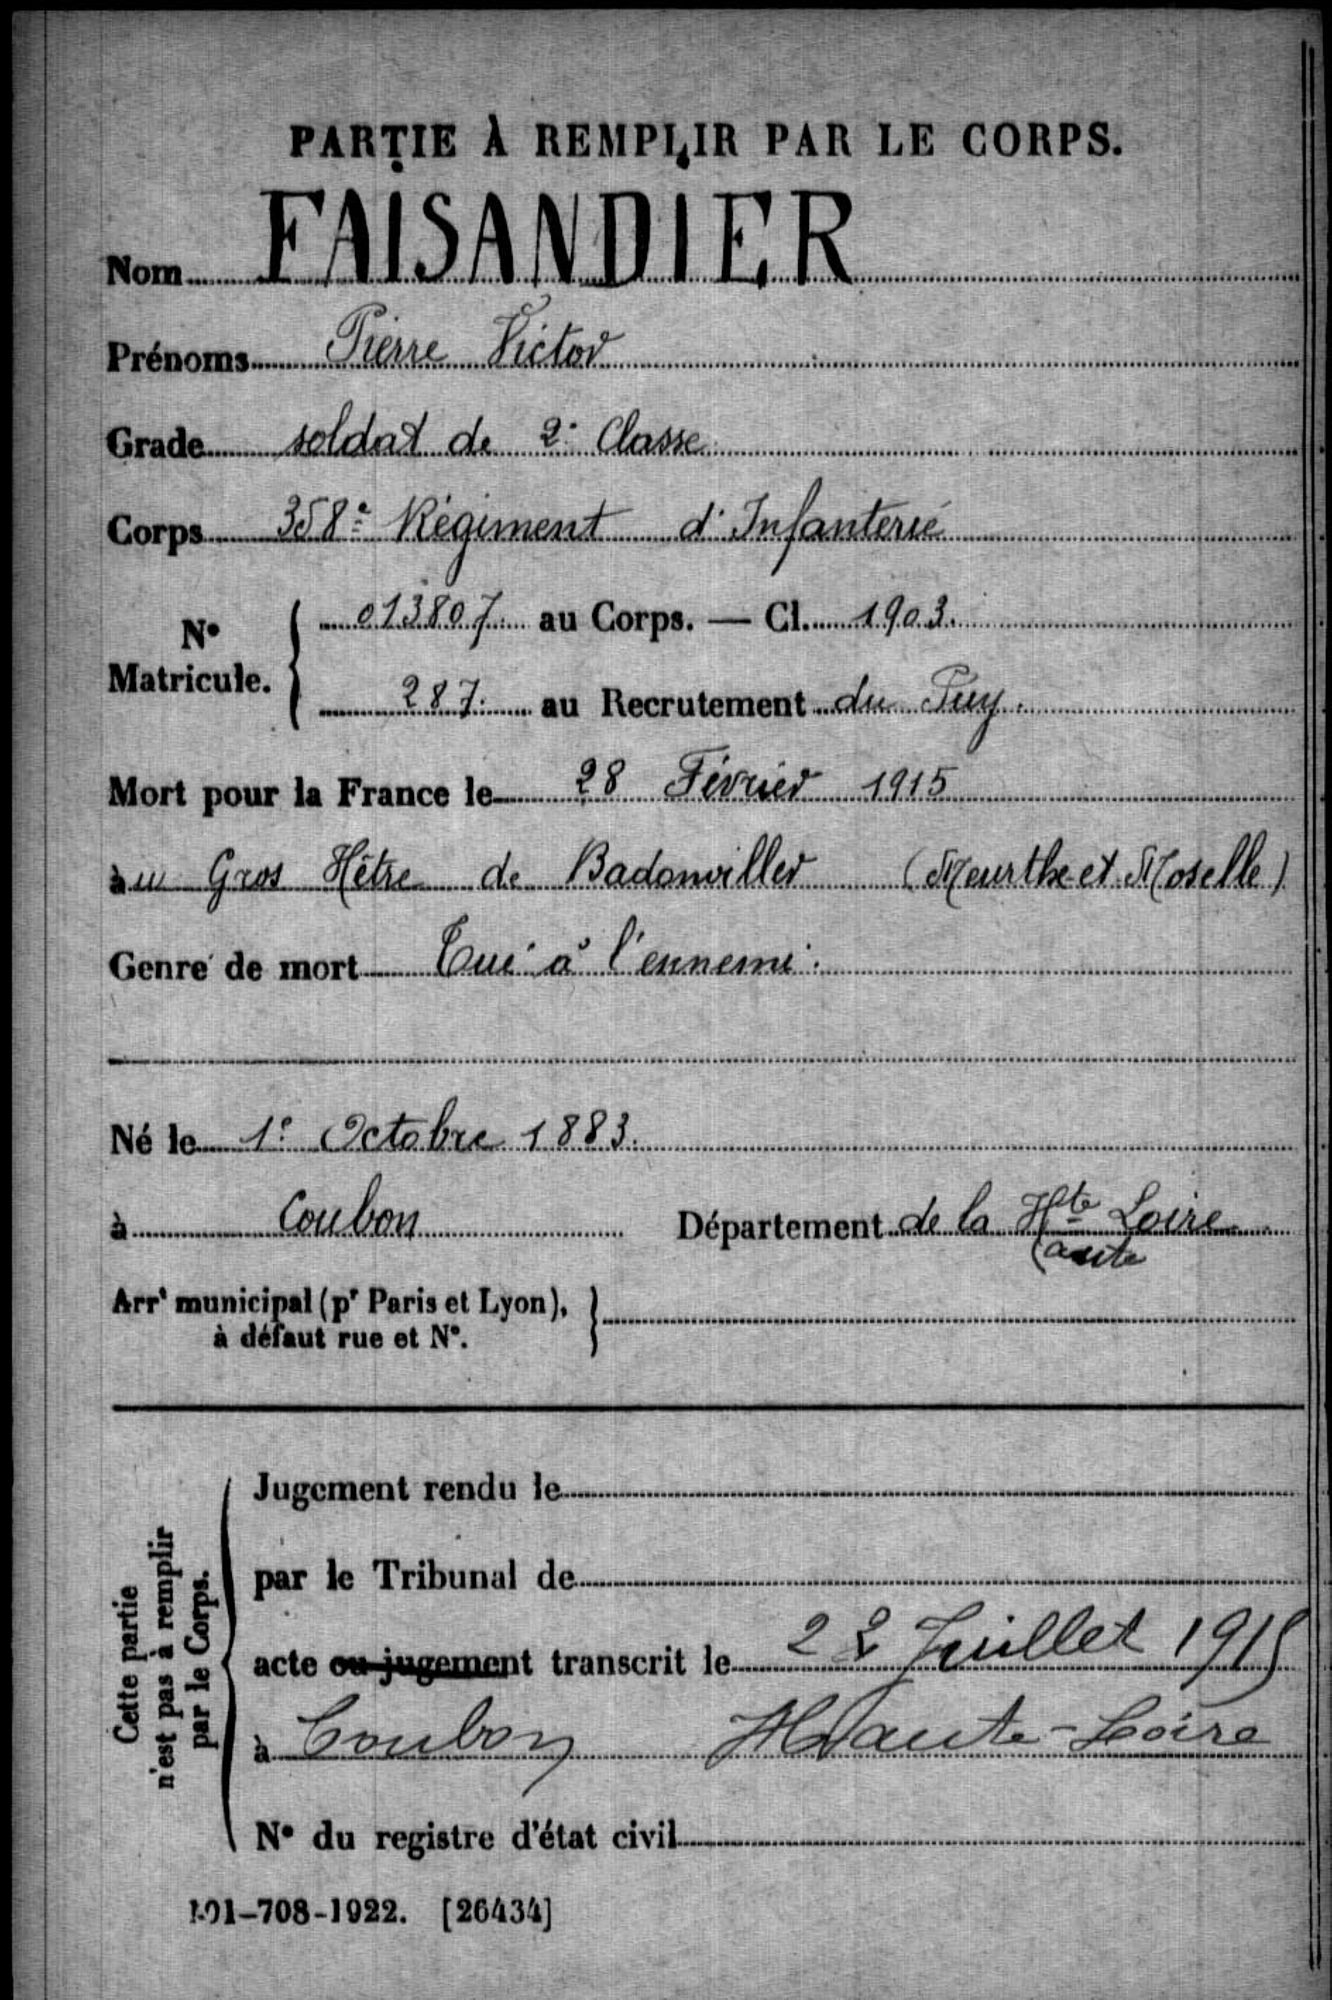 PARTIE À REMPLIR PAR LE CORPS.
Nom FAISANDIER
Prénoms Pierre Victor
Grade soldat de 2e Classe
Corps 358e Régiment d'Infanterie
N° Matricule. 013807 au Corps. — Cl. 1903.
287. au Recrutement du Puy.
Mort pour la France le 28 Février 1915
au Gros Hêtre de Badonviller (Meurthe et Moselle)
Genre de mort Tué à l'ennemi.
Né le 1e Octobre 1883.
à Coubon Département de la Hte Loire
aute
Arrt municipal (pr Paris et Lyon),
à défaut rue et N°.
Cette partie
n'est pas à remplir
par le Corps.
Jugement rendu le
par le Tribunal de
acte ou jugement transcrit le 22 Juillet 1915
à Coubon Haute-Loire
N° du registre d'état civil
101-708-1922. [26434]